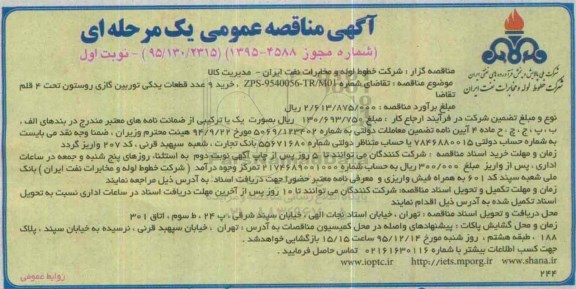 آگهی مناقصه عمومی یک مرحله ای
(شماره مجوز ۴۵۸۸-۱۳۹۵) (۹۵/۱۳۰/۲۳۱۵) - نوبت اول
شرکت خطوط لوله و مخابرات نفت ایران
مناقصه گزار : شرکت خطوط لوله و مخابرات نفت ایران - مدیریت کالا
موضوع مناقصه : تقاضای شماره ZPS-9540056-TR/M01 ، خرید ۹ عدد قطعات یدکی توربین گازی روستون تحت ۴ قلم
تقاضا
مبلغ برآورد مناقصه : ۲/۶۱۳/۸۷۵/۰۰۰ ریال
نوع و مبلغ تضمین شرکت در فرآیند ارجاع کار : مبلغ ۱۳۰/۶۹۳/۷۵۰ ریال بصورت یک یا ترکیبی از ضمانت نامه های معتبر مندرج در بندهای الف ،
ب ، پ ، ج ، چ ، ح ماده ۴ آیین نامه تضمین معاملات دولتی به شماره ۵۰۶۵۹/۱۲۳۴۰۲ مورخ ۹۴/۹/۲۲ هیئت محترم وزیران ، ضمنا وجه نقد می بایست
به حساب شماره ۷۸۴۶۸۸۰۰۱۵ یا حساب متناظر دولتی شماره ۵۵۶۷۱۶۸۰ بانک تجارت ، شعبه سپهبد قرنی ، کد ۲۰۷ واریز گردد
زمان و مهلت خرید اسناد مناقصه : شرکت کنندگان می توانند تا ۵ روز پس از چاپ آگهی نوبت دوم به استثناء روزهای پنج شنبه و جمعه در ساعات
اداری ، پس از واریز مبلغ ۳۰۰/۰۰۰ ریال به حساب شماره ۲۱۷۴۶۸۹۰۰۱۰۰۰ تمرکز وجوه درآمد ( شرکت خطوط لوله و مخابرات نفت ایران ) بانک
ملی شعبه سپند کد ۶۰۱ به همراه فیش واریزی و معرفی نامه معتبر حضورا جهت دریافت اسناد به آدرس ذیل مراجعه نمایند
زمان و مهلت تکمیل و تحویل اسناد مناقصه: شرکت کنندگان می توانند تا ۱۰ روز پس از آخرین مهلت دریافت اسناد در ساعات اداری نسبت به تحویل
اسناد تکمیل شده به آدرس ذیل اقدام نمایند
محل دریافت و تحویل اسناد مناقصه : تهران ، خیابان استاد نجات الهی ، خیابان سپند شرقی ، پ ۲۴ ، ط سوم ، اتاق ۳۰۱
زمان و محل گشایش پاکات : پیشنهادهای واصله در محل کمیسیون مناقصات به آدرس : تهران ، خیابان سپهبد قرنی ، نرسیده به خیابان سپند ، پلاک
۱۸۸ ، طبقه هشتم ، روز شنبه مورخ ۹۵/۱۲/۱۴ ساعت ۱۵/۱۵ بازگشایی خواهدشد .
جهت کسب اطلاعات بیشتر با شماره ۰۲۱۶۱۶۳۰۱۱۶ تماس حاصل فرمایید .
www.ioptc.ir http://iets.mporg.ir www.shana.ir
۲۴۴
روابط عمومی